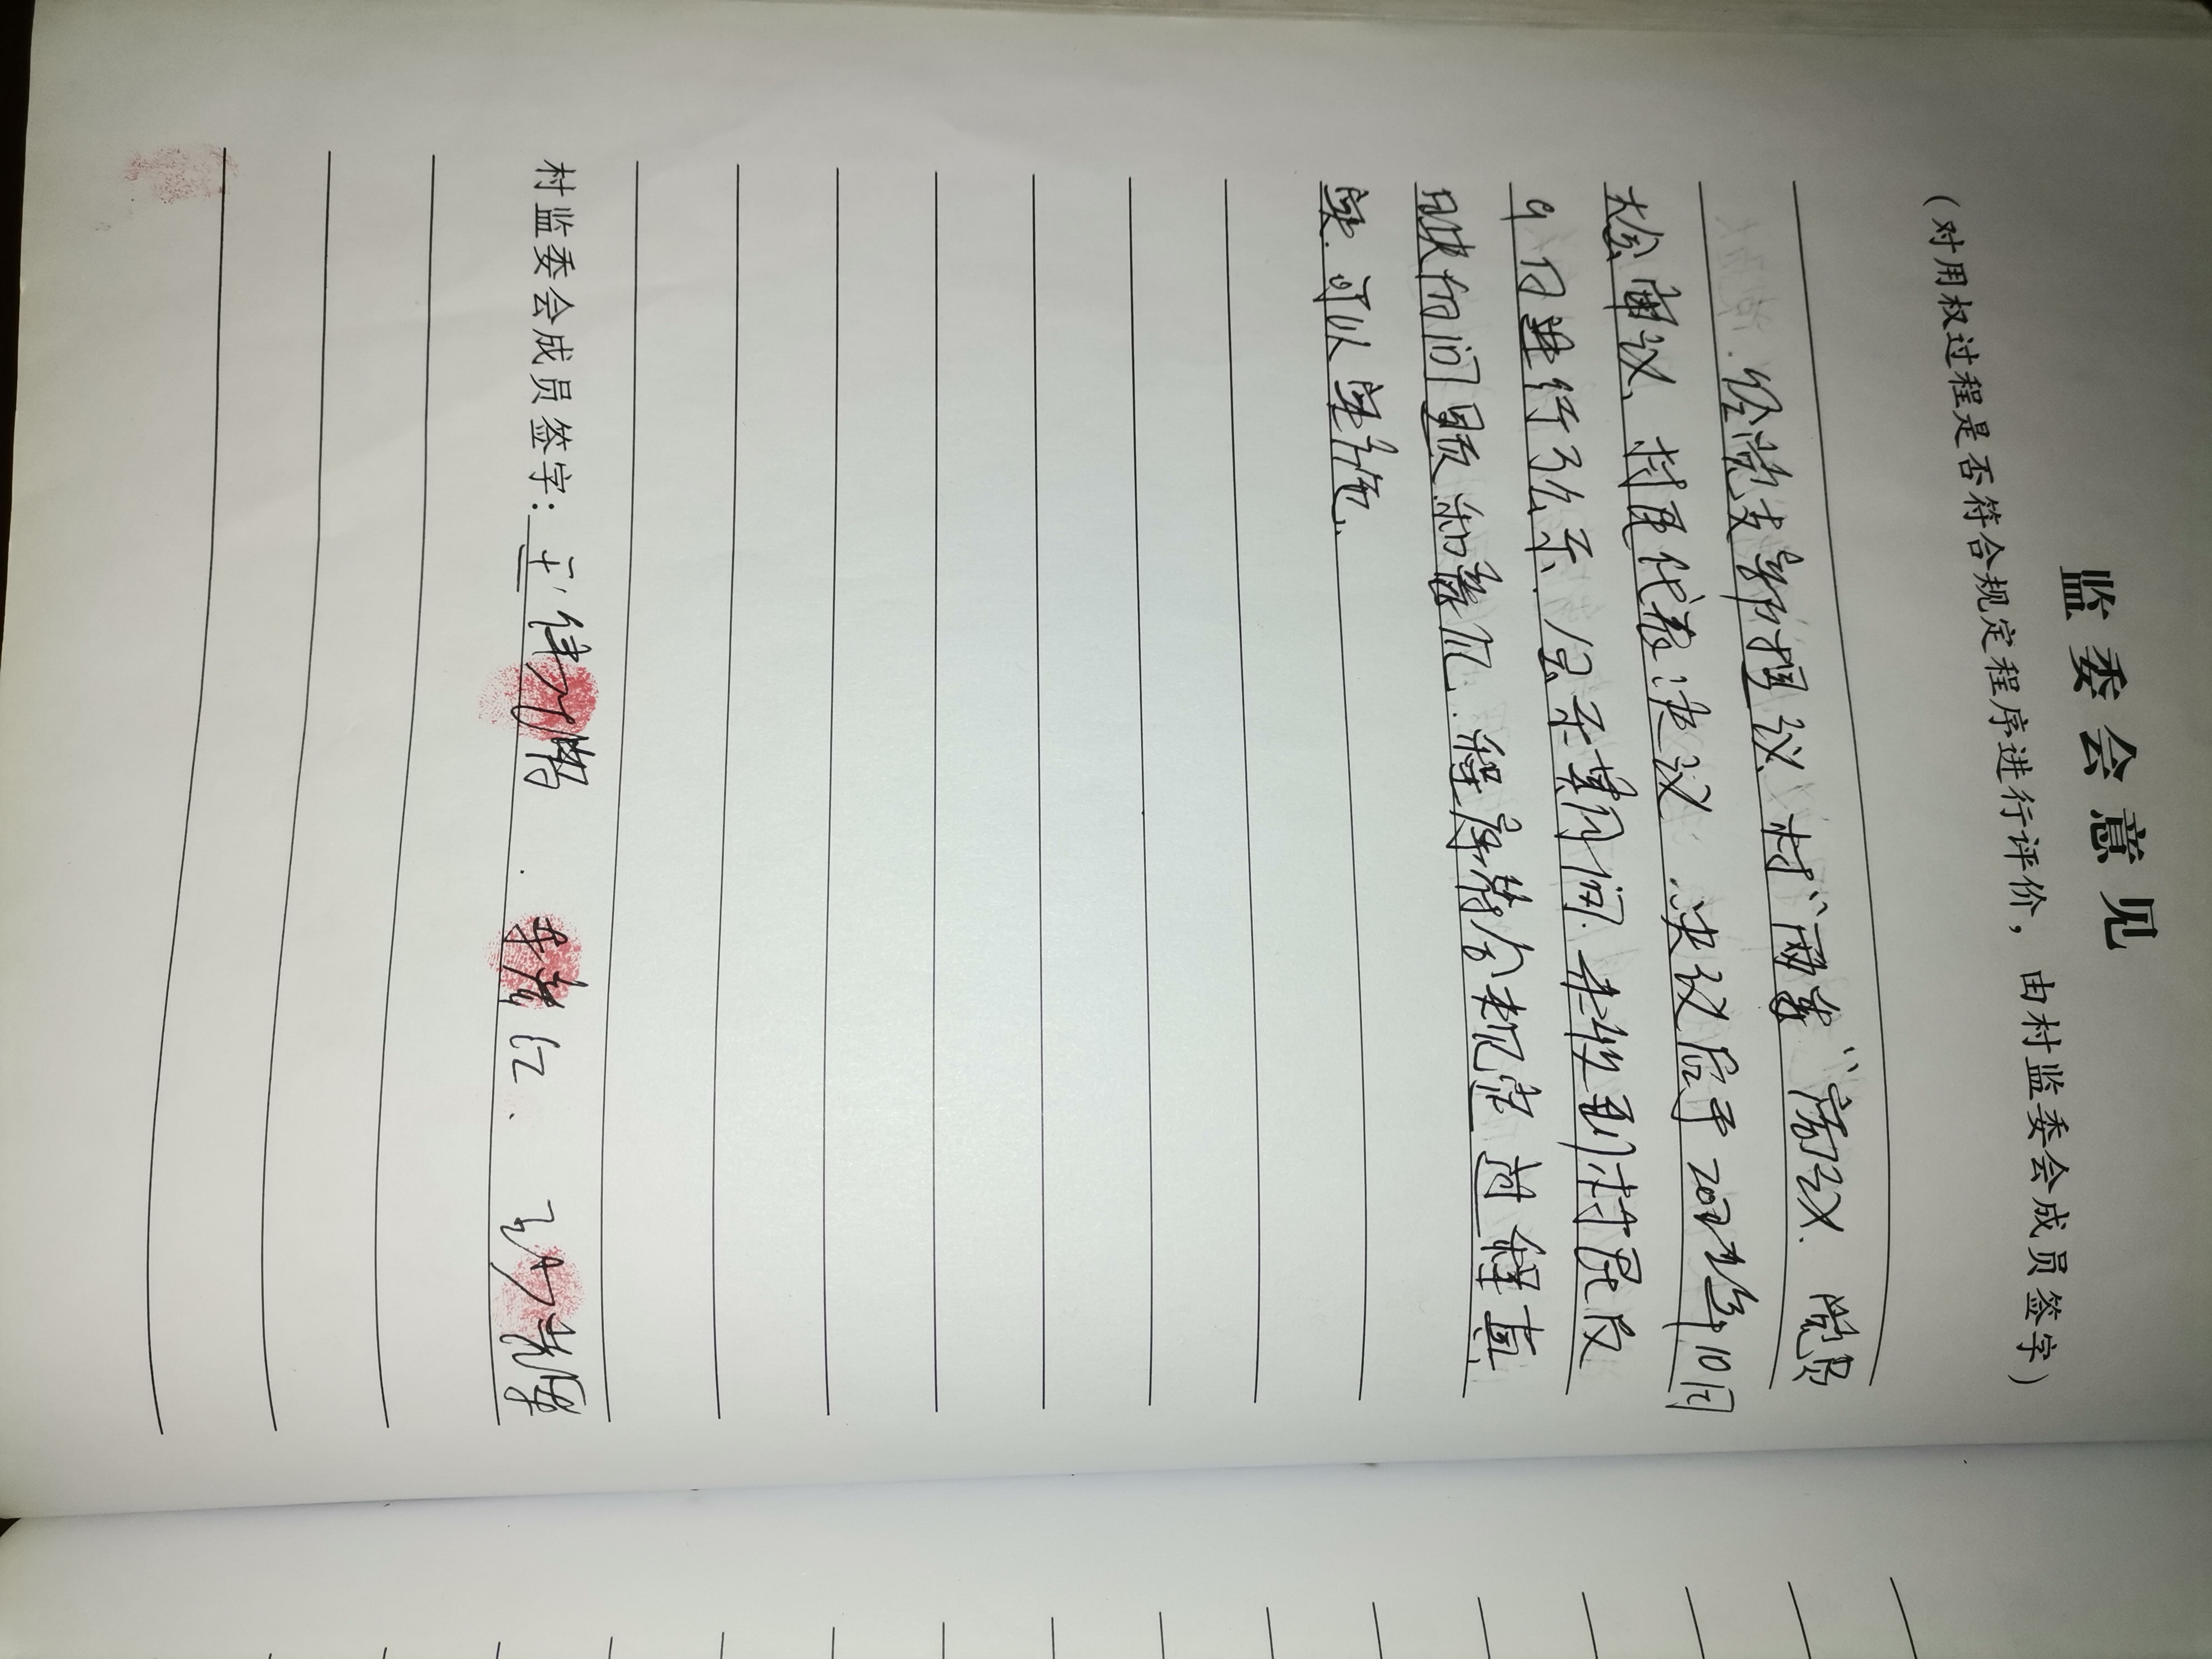 监委会意见
（对用权过程是否符合规定程序进行评价，由村监委会成员签字）
经党支部提议、村“两委”商议、党员
大会审议、村民代表决议、决议后于年10月
9日进行了公示、公示期间、未收到村民反
映的问题和意见、程序符合规定过程真
实、可以实施、
村监委会成员签字：王伟 红、王